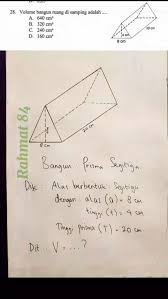 28. Volume bangun ruang di samping adalah ....
A. 640 cm³
B. 320 cm³
C. 240 cm³
D. 160 cm³
4 cm
8 cm
20 cm
Rahmat 84
4
8 cm
20 cm
Bangun Prisma Segitiga
Dik: Alas berbentuk Segitiga
dengan alas (a) = 8 cm
tinggi (t) = 4 cm
Tinggi prisma (T) = 20 cm
Dit V = ... ?